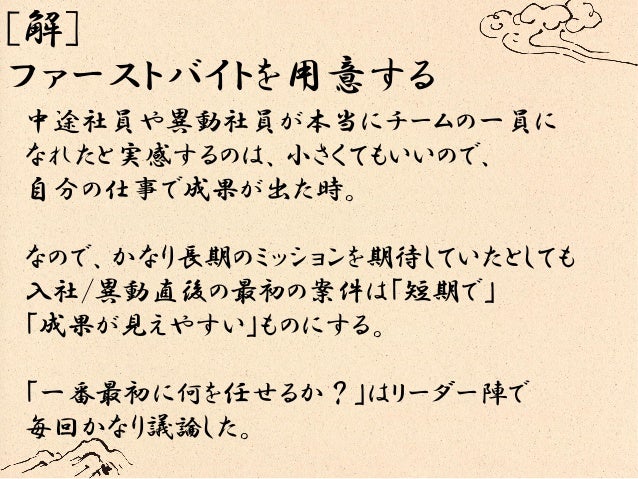 [解]
ファーストバイトを用意する
中途社員や異動社員が本当にチームの一員に
なれたと実感するのは、小さくてもいいので、
自分の仕事で成果が出た時。
なので、かなり長期のミッションを期待していたとしても
入社/異動直後の最初の案件は「短期で」
「成果が見えやすい」ものにする。
「一番最初に何を任せるか？」はリーダー陣で
毎回かなり議論した。